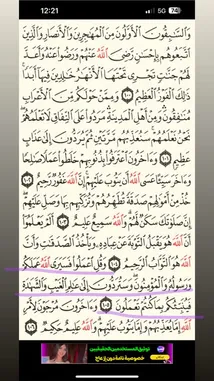 12:21
5G
74
وَالسَّٰبِقُونَ الْأَوَّلُونَ مِنَ الْمُهَٰجِرِينَ وَالْأَنصَارِ وَالَّذِينَ
اتَّبَعُوهُم بِإِحْسَٰنٍ رَّضِيَ اللَّهُ عَنْهُمْ وَرَضُوا عَنْهُ وَأَعَدَّ
لَهُمْ جَنَّٰتٍ تَجْرِي تَحْتَهَا الْأَنْهَٰرُ خَٰلِدِينَ فِيهَا أَبَدًا
ذَٰلِكَ الْفَوْزُ الْعَظِيمُ ١٠٠ وَمِمَّنْ حَوْلَكُم مِّنَ الْأَعْرَابِ
مُنَٰفِقُونَ وَمِنْ أَهْلِ الْمَدِينَةِ مَرَدُوا عَلَى النِّفَاقِ لَا تَعْلَمُهُمْ
نَحْنُ نَعْلَمُهُمْ سَنُعَذِّبُهُم مَّرَّتَيْنِ ثُمَّ يُرَدُّونَ إِلَىٰ عَذَابٍ
عَظِيمٍ ١٠١ وَءَاخَرُونَ اعْتَرَفُوا بِذُنُوبِهِمْ خَلَطُوا عَمَلًا صَٰلِحًا
وَءَاخَرَ سَيِّئًا عَسَى اللَّهُ أَن يَتُوبَ عَلَيْهِمْ إِنَّ اللَّهَ غَفُورٌ رَّحِيمٌ
١٠٢ خُذْ مِنْ أَمْوَٰلِهِمْ صَدَقَةً تُطَهِّرُهُمْ وَتُزَكِّيهِم بِهَا وَصَلِّ عَلَيْهِمْ
إِنَّ صَلَوٰتَكَ سَكَنٌ لَّهُمْ وَاللَّهُ سَمِيعٌ عَلِيمٌ ١٠٣ أَلَمْ يَعْلَمُوا
أَنَّ اللَّهَ هُوَ يَقْبَلُ التَّوْبَةَ عَنْ عِبَادِهِ وَيَأْخُذُ الصَّدَقَٰتِ وَأَنَّ
اللَّهَ هُوَ التَّوَّابُ الرَّحِيمُ ١٠٤ وَقُلِ اعْمَلُوا فَسَيَرَى اللَّهُ عَمَلَكُمْ
وَرَسُولُهُ وَالْمُؤْمِنُونَ وَسَتُرَدُّونَ إِلَىٰ عَٰلِمِ الْغَيْبِ وَالشَّهَٰدَةِ
فَيُنَبِّئُكُم بِمَا كُنتُمْ تَعْمَلُونَ ١٠٥ وَءَاخَرُونَ مُرْجَوْنَ لِأَمْرِ
اللَّهِ إِمَّا يُعَذِّبُهُمْ وَإِمَّا يَتُوبُ عَلَيْهِمْ وَاللَّهُ عَلِيمٌ حَكِيمٌ ١٠٦